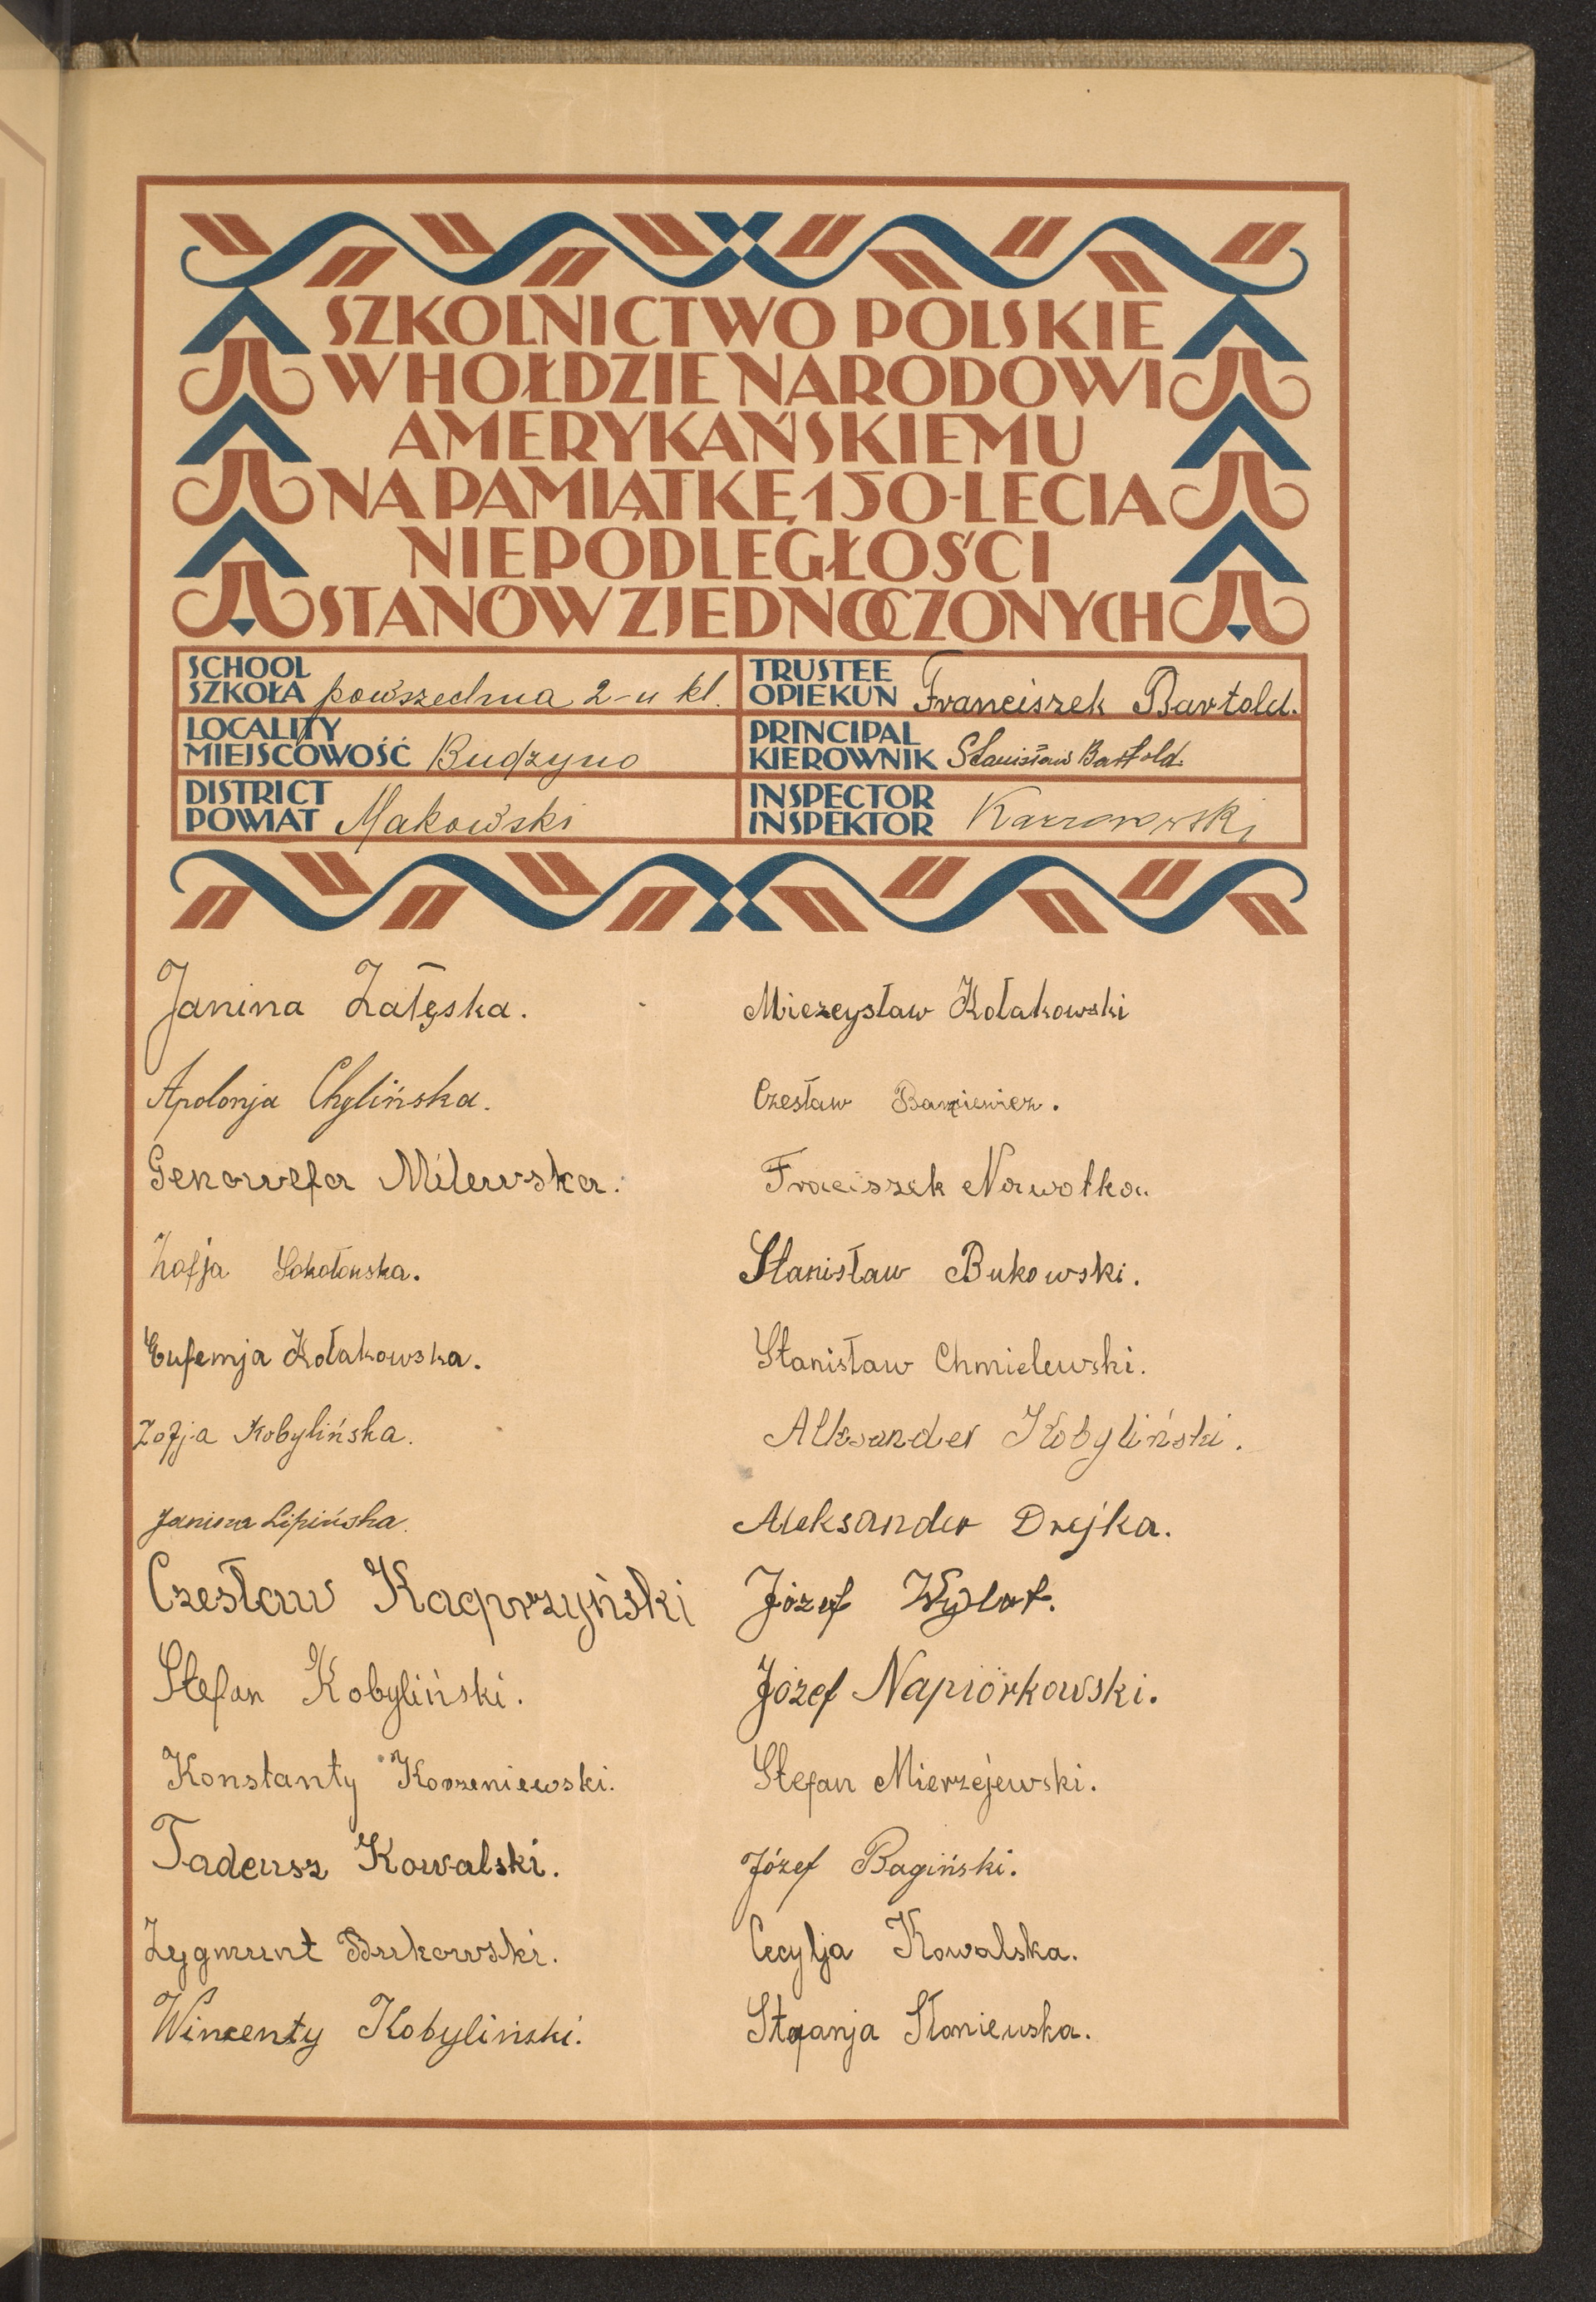 SZKOLNICTWO POLSKIE
W HOŁDZIE NARODOWI
AMERYKAŃSKIEMU
NA PAMIĄTKĘ 150-LECIA
NIEPODLEGŁOŚCI
STANÓW ZJEDNOCZONYCH
SCHOOL
SZKOŁA powszechna 2-u kl.
TRUSTEE
OPIEKUN Franciszek Bartold.
LOCALITY
MIEJSCOWOŚĆ Budzyno
PRINCIPAL
KIEROWNIK Stanisław Bartold.
DISTRICT
POWIAT Makowski
INSPECTOR
INSPEKTOR
Janina Załęska.
Apolonja Chylińska.
Genowefa Milewska.
Zofja Sokołowska.
Eufemja Kołakowska.
Zofja Kobylińska.
Janina Lipińska.
Czesław Kacprzyński
Stefan Kobyliński.
Konstanty Korzeniewski.
Tadeusz Kowalski.
Zygmunt Bukowski.
Wincenty Kobyliński.
Mieczysław Kołakowski
Czesław
Fraciszek Nawotka.
Stanisław Bukowski.
Stanisław Chmielewski.
Alksander Kobyliński.
Aleksander Drejka.
Józef
Józef Napiórkowski.
Stefan Mierzejewski.
Józef Bagiński.
Cecylja Kowalska.
Stefanja Słoniewska.